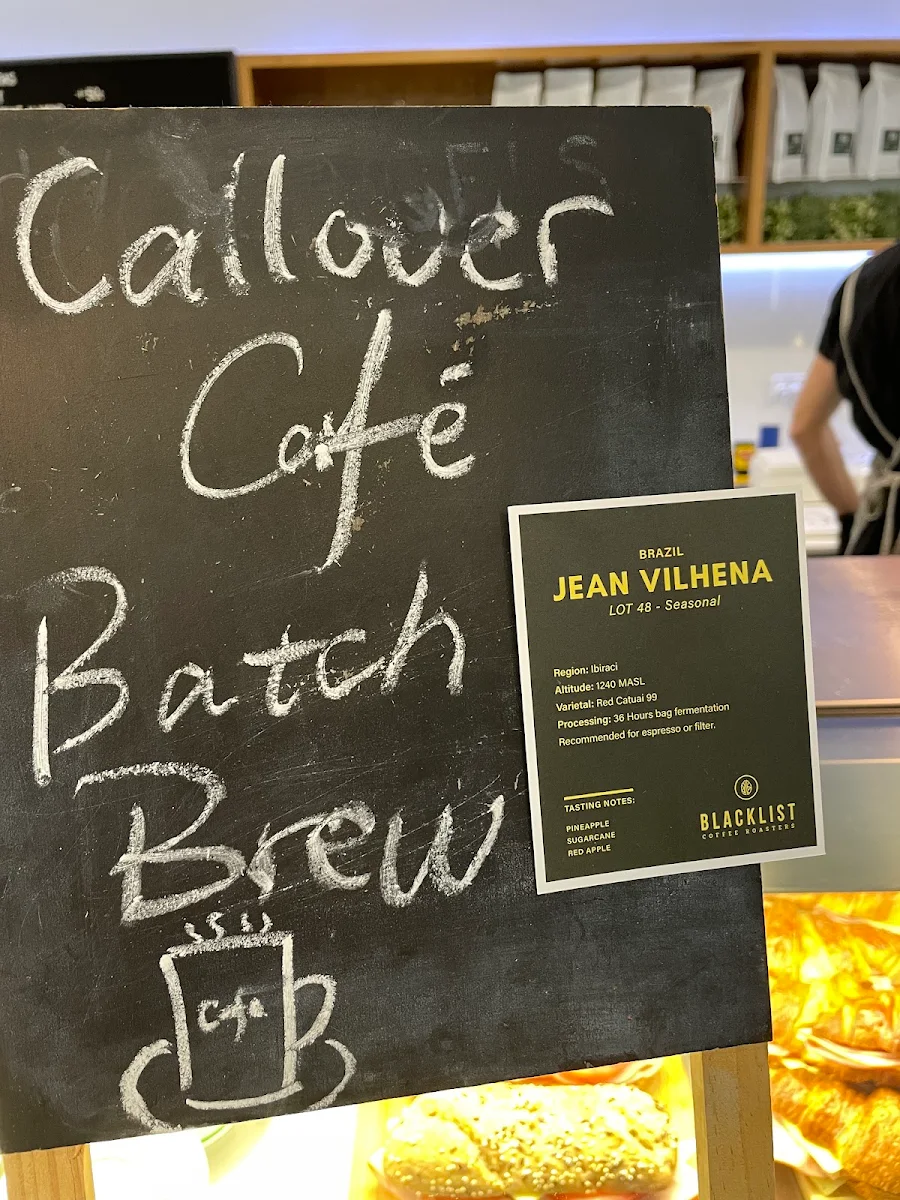 Callover
Café
Batch
Brew
Cafe
BRAZIL
JEAN VILHENA
LOT 48 - Seasonal
Region: Ibiraci
Altitude: 1240 MASL
Varietal: Red Catuai 99
Processing: 36 Hours bag fermentation
Recommended for espresso or filter.
TASTING NOTES:
PINEAPPLE
SUGARCANE
RED APPLE
BLACKLIST
COFFEE ROASTERS